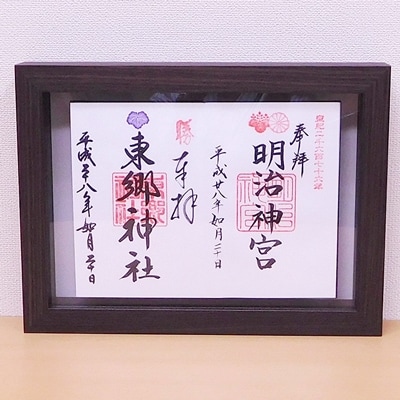 皇紀二千六百七十六年
奉拝
明治神宮
平成廿八年如月二十日
勝
奉拝
東郷神社
平成二十八年如月二十日